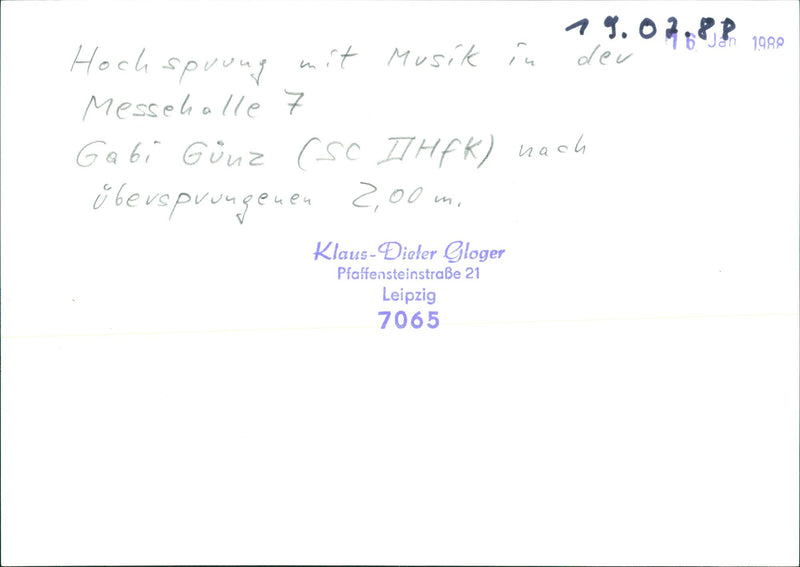 19.02.88
16. Jan 1988
Hochsprung mit Musik in der
Messehalle 7
Gabi Günz (SC DHfK) nach
übersprungenen 2,00 m.
Klaus-Dieter Gloger
Pfaffensteinstraße 21
Leipzig
7065